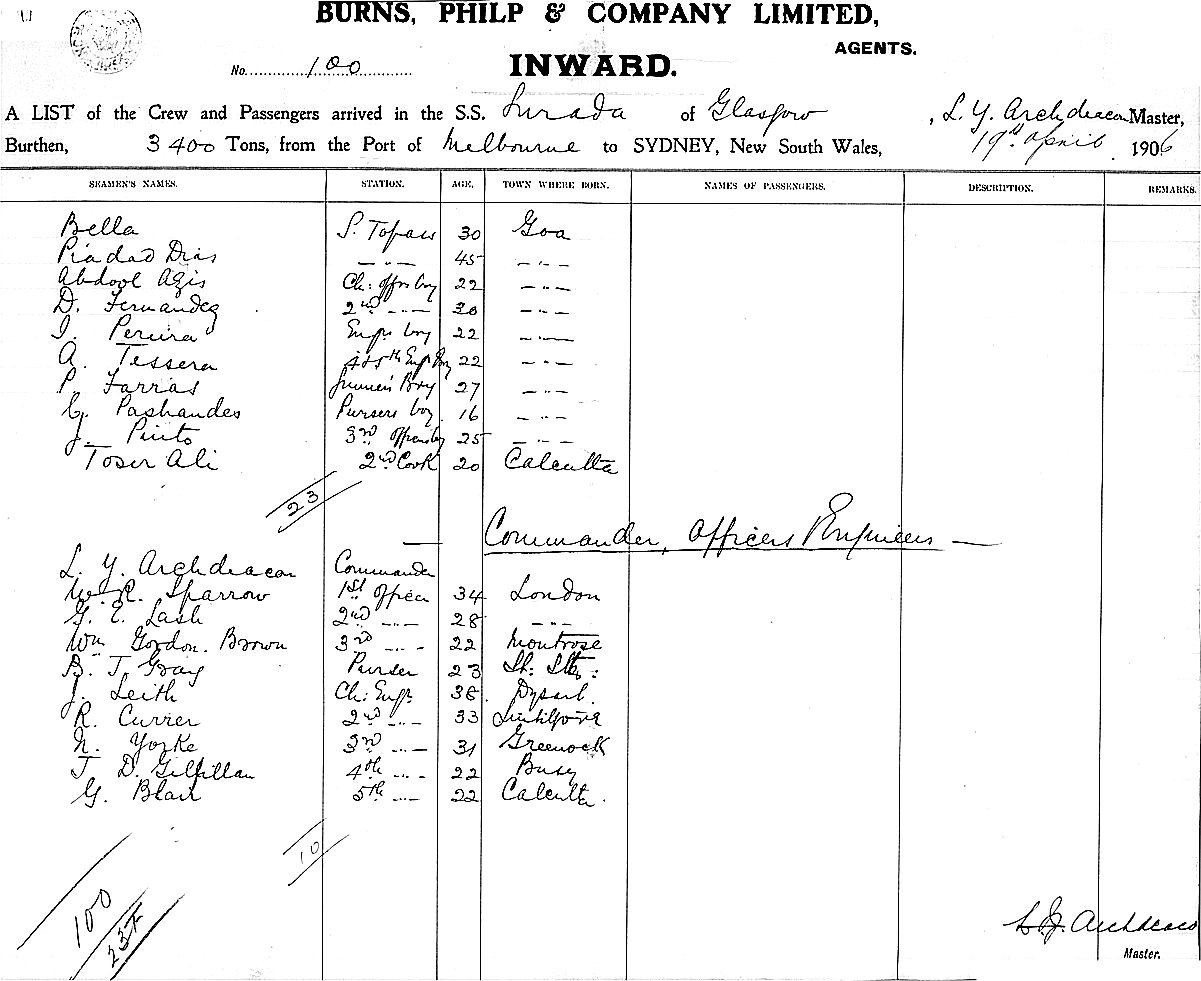 BURNS, PHILP & COMPANY LIMITED,
AGENTS.
No. 100
INWARD.
A LIST of the Crew and Passengers arrived in the S.S. Surada of Glasgow, L. Y. Archdeacon Master,
Burthen, 3400 Tons, from the Port of Melbourne to SYDNEY, New South Wales, 19th April 1906
SEAMEN'S NAMES. STATION. AGE. TOWN WHERE BORN. NAMES OF PASSENGERS. DESCRIPTION. REMARKS.
Bella S. Topass 30 Goa
Piadad Dias — " — 45 — " —
Abdool Azis Ch: offrs boy 22 — " —
D. Fernandez 2nd — " — 30 — " —
I. Pereira Engrs boy 22 — " —
A. Tessera 4 & 5th Engr Boy 22 — " —
P. Farras Boy 27 — " —
C. Pashandes Pursers boy 16 — " —
J. Pinto 3rd offrs boy 25 — " —
Toser Ali 2nd Cook 20 Calcutta
23
— Commander, Officers Engineers —
L. Y. Archdeacon Commander
W. R. Sparrow 1st officer 34 London
G. E. Lash 2nd — " — 28 — " —
Wm Gordon. Brown 3rd — " — 22 Montrose
B. J. Gray Purser 23
J. Leith Ch: Engr. 38 Dysart.
R. Currer 2nd — " — 33
N. Yorke 3rd — " — 31 Greenock
J. D. Gilfillan 4th — " — 22 Busy
G. Blair 5th — " — 22 Calcutta.
10
100
237
L. Y. Archdeacon
Master.